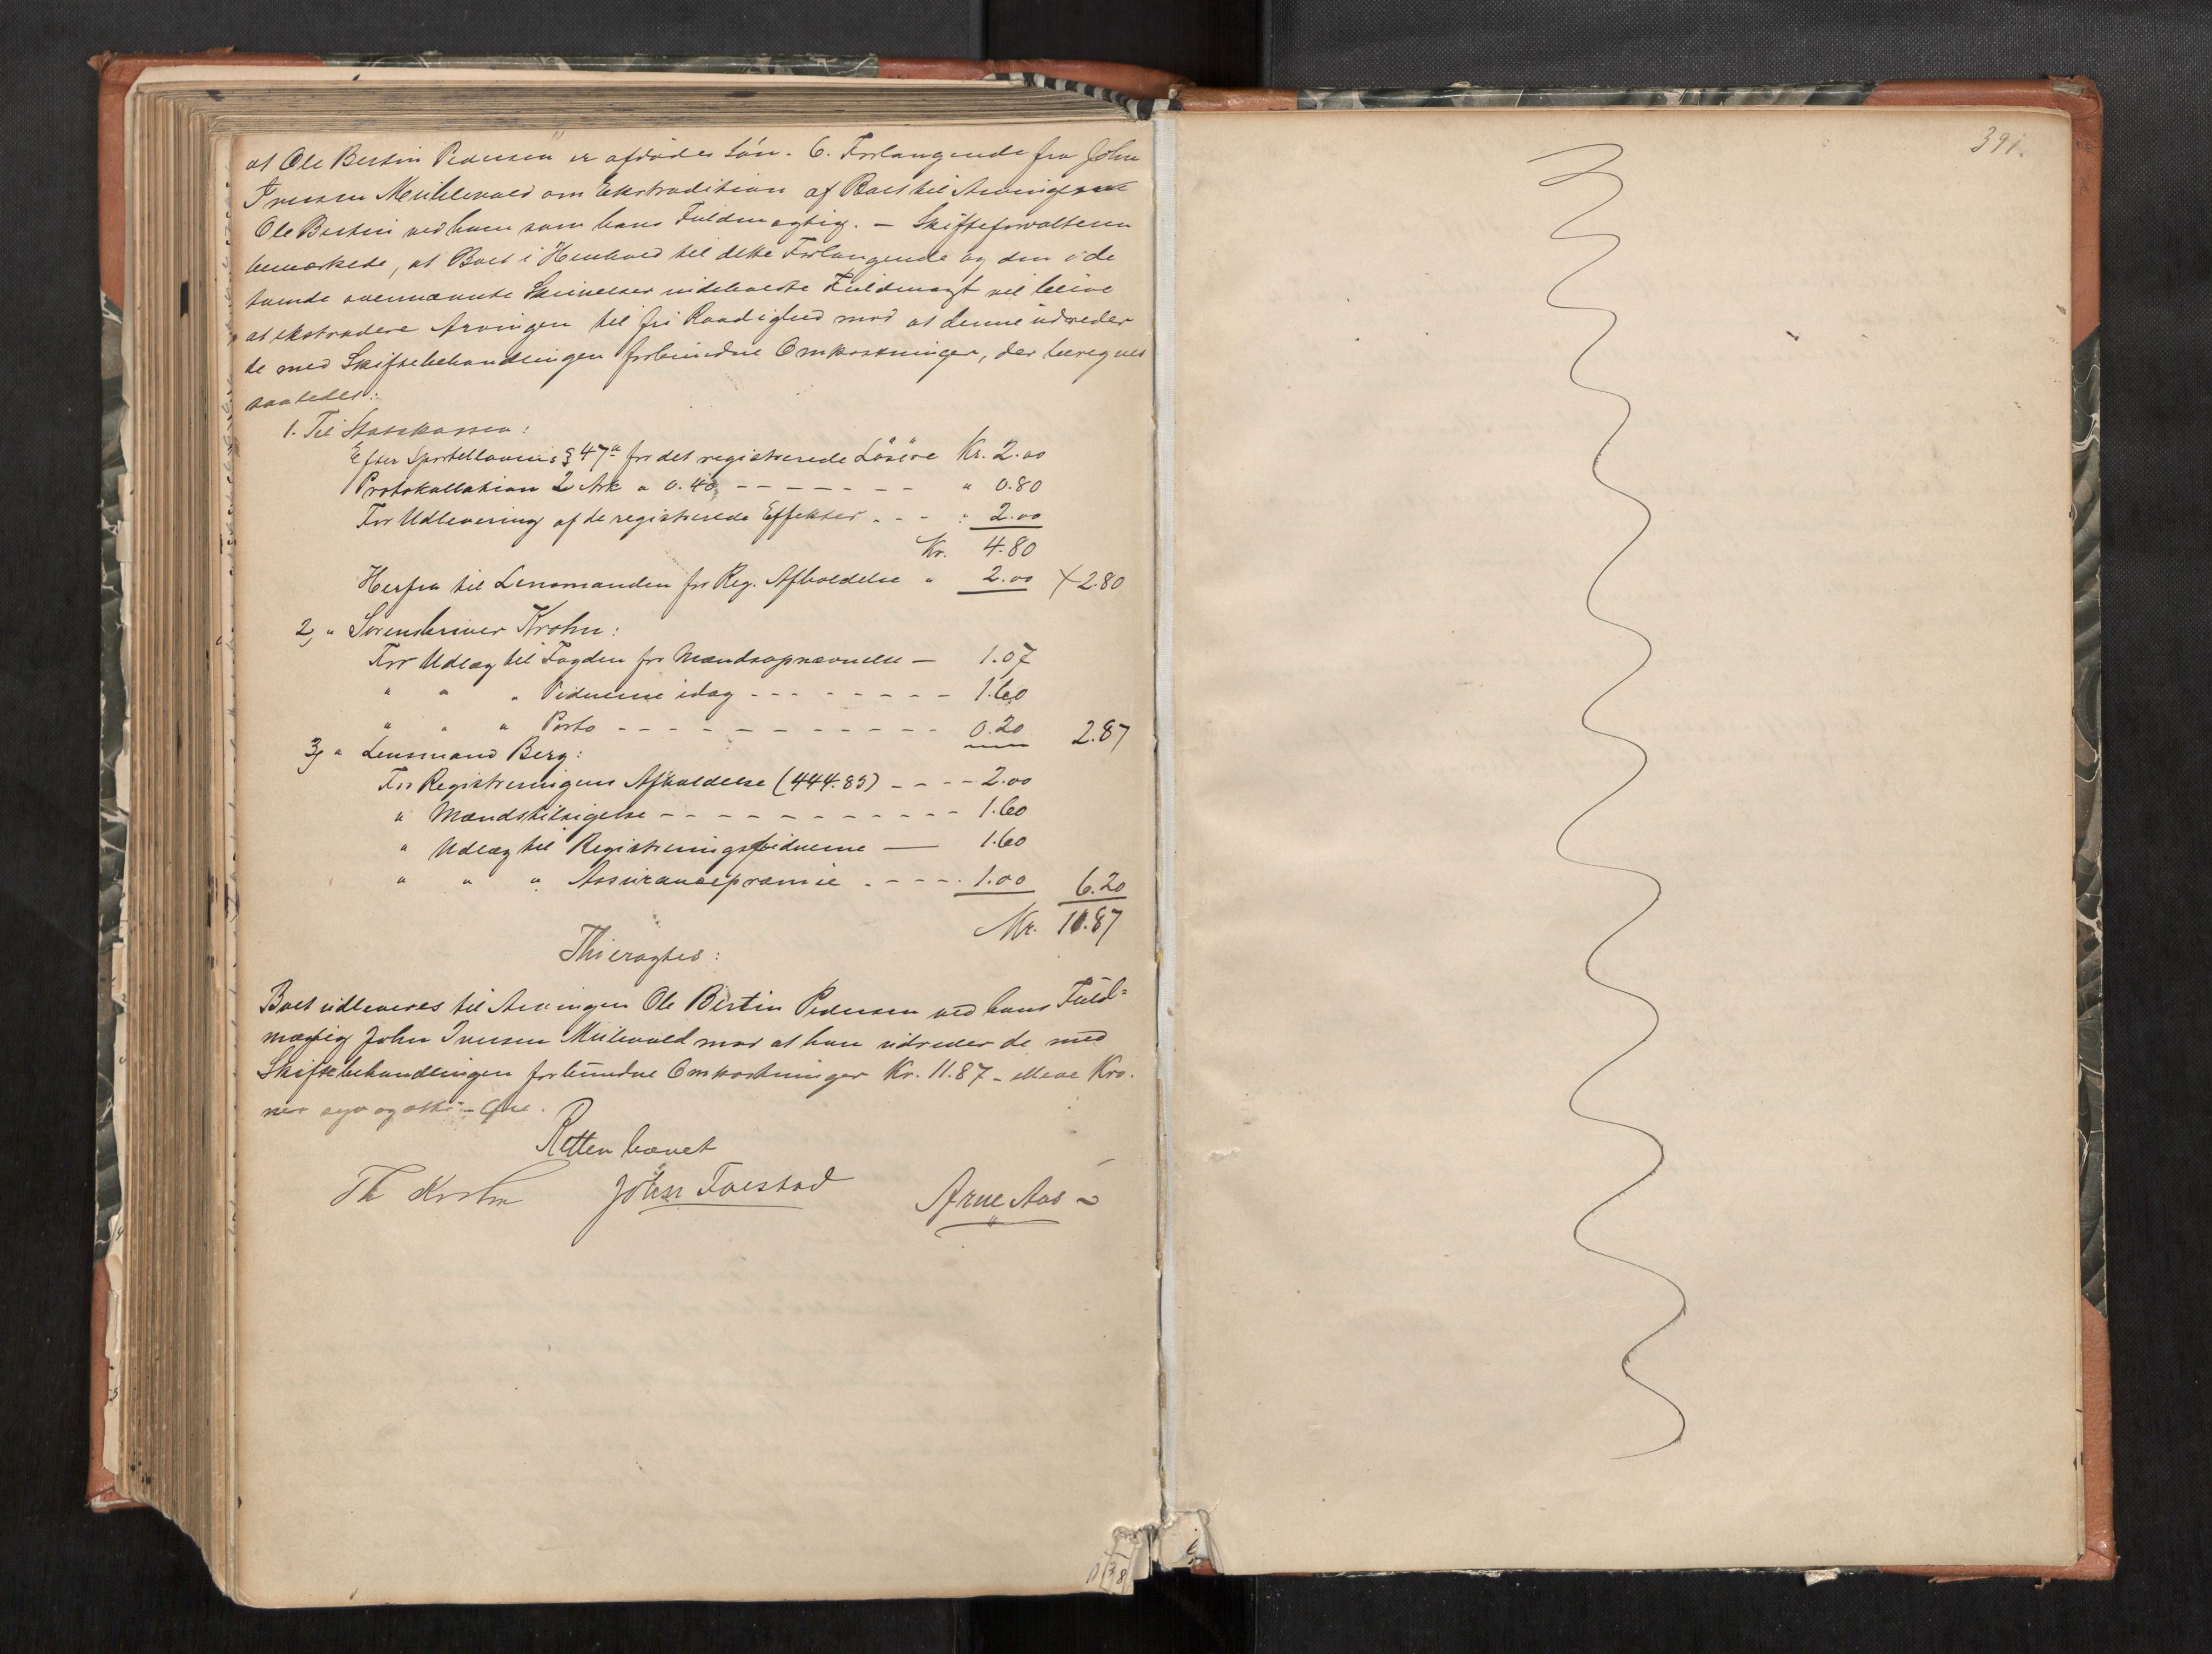 at Ole Bertin Pedersen er afdødes Søn. 6. Forlangende fra John
Iversen Meühlevold om Ekstradition af Boet til Arvingen
Ole Bertin ved ham som hans Fuldmægtig. – Skifteforvalteren
bemærkede, at Boet i Henhold til dette Forlangende og den i de
tvende ovennævnte Skrivelser indeholdte Fuldmagt vil blive
at ekstradere Arvingen til fri Raadighed mod at denne udreder
de med Skiftebehandlingen forbundne Omkostninger, der beregnes
saaledes:
1. Til Statskassen:
Efter Sportellovens § 47a for det registrerede Løsøre Kr. 2.00
Protokollation 2 Ark a 0.40 – – – – – – – " 0.80
For Udlevering af de registrerede Effekter . – – " 2.00
Kr. 4.80
Herfra til Lensmanden for Reg. Afholdelse " 2.00 2.80
2, " Sorenskriver Krohn:
For Udlæg til Fogden for Mændsopnævnelse – 1.07
" " " Vidnerne idag – – – – – – – – 1.60
" " " Porto – – – – – – – – – – – 0.20 2.87
3, " Lensmand Berg:
For Registreringens Afholdelse (444.85) – – – – 2.00
" Mændstilsigelse – – – – – – – – – – – 1.60
" Udlæg til Registreringsvidnerne — 1.60
" " " Assurancepræmie . – – – . 1.00 6.20
Kr. 11.87
Thi eragtes:
Boet udleveres til Arvingen Ole Bertin Pedersen ved hans Fuld=
mægtig John Iversen Mülevold mod at han udreder de med
Skiftebehandlingen forbundne Omkostninger Kr. 11.87 – elleve Kro-
ner syv og otti – Øre.
Retten hævet
Th Krohn John Foestad Arne Aas
391.